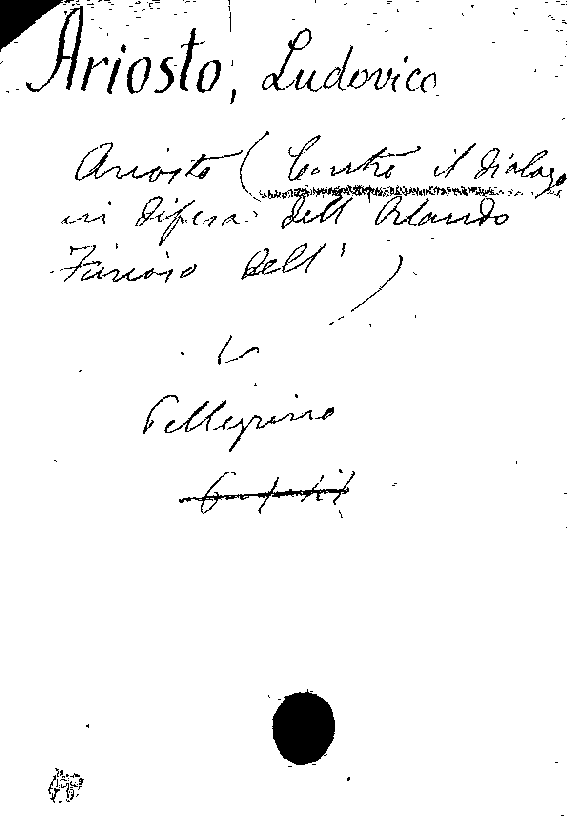 Ariosto, Ludovico
Ariosto (Contro il dialogo
in difesa dell Orlando
Furioso dell' )
V
Pellegrino